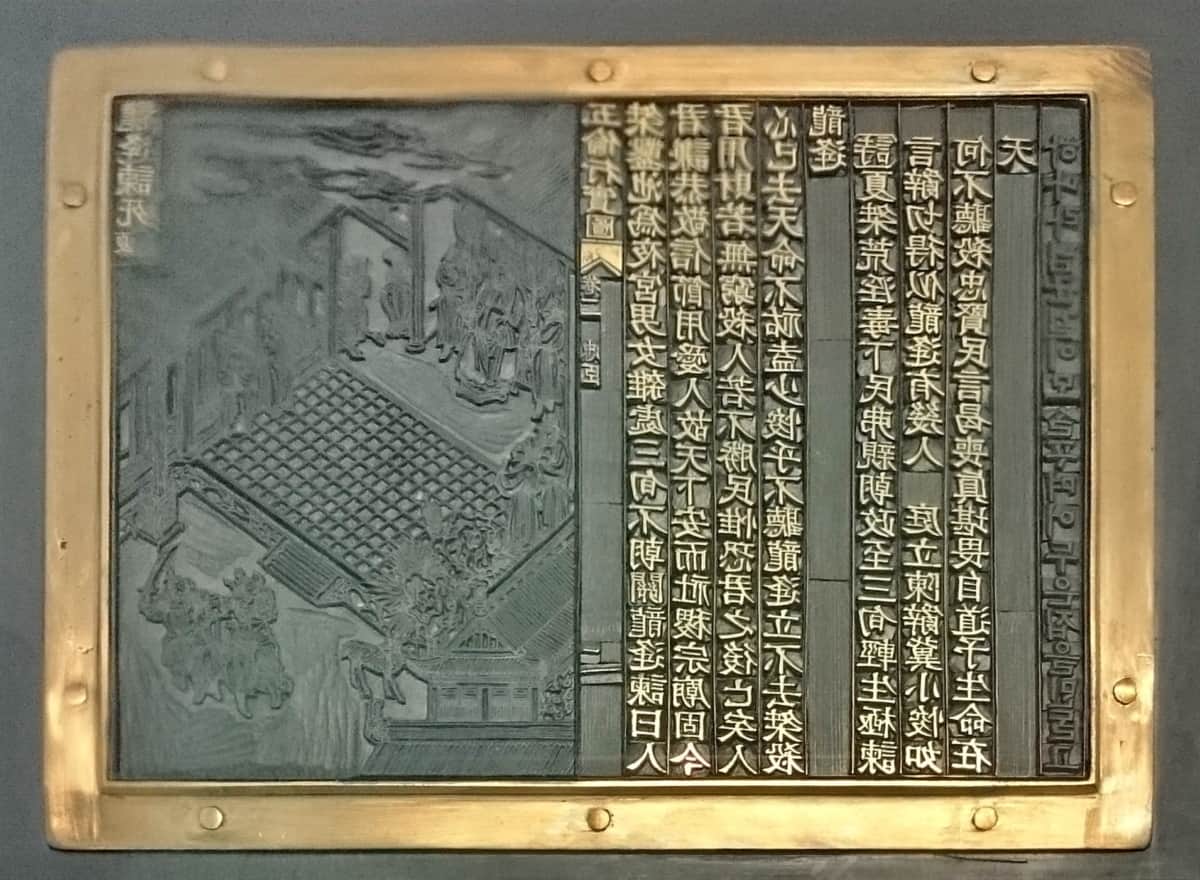 龍逢諫死 夏
五倫行實圖 卷二 忠臣
桀鑿池爲夜宮男女雜處三旬不朝關龍逢諫曰人
君謙恭敬信節用愛人故天下安而社稷宗廟固今
君用財若無窮殺人若不勝民惟恐君之後亡矣人
心已去天命不祐盍少悛乎不聽龍逢立不去桀殺
龍逢
詩夏桀荒淫毒下民弗親朝政至三旬輕生極諫
言辭切得似龍逢有幾人 庭立陳辭冀小悛如
何不聽殺忠賢民言曷喪眞堪畏自道予生命在
天